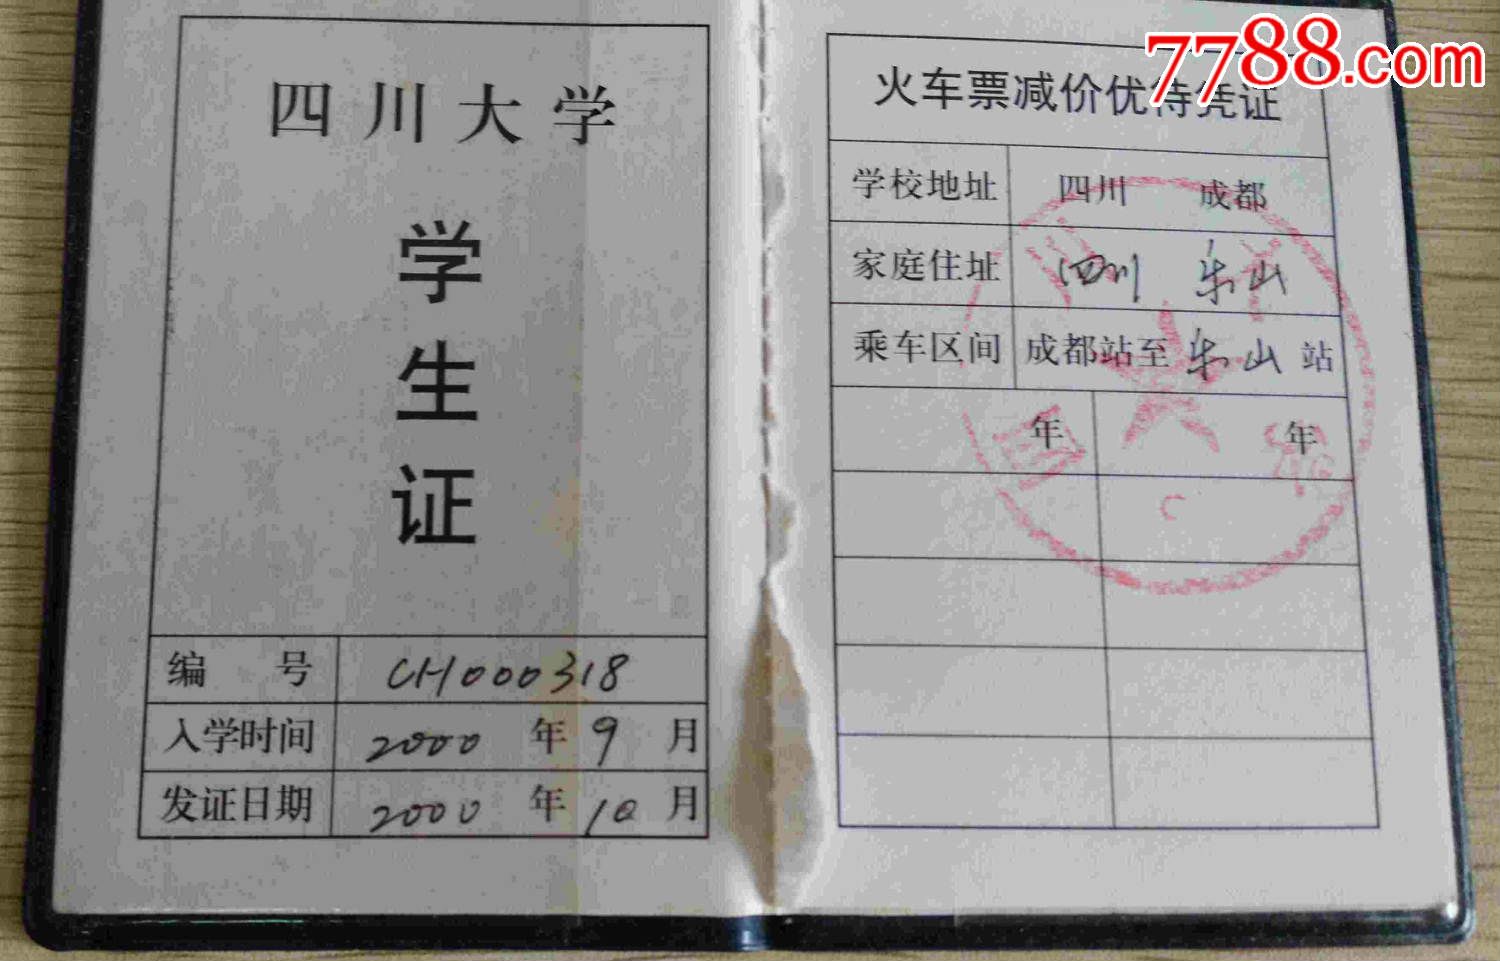 四川大学
学
生
证
编 号 CH000318
入学时间 2000 年 9 月
发证日期 2000 年 10 月
7788.com
火车票减价优待凭证
学校地址 四川 成都
家庭住址 四川 乐山
乘车区间 成都站至乐山站
年 年